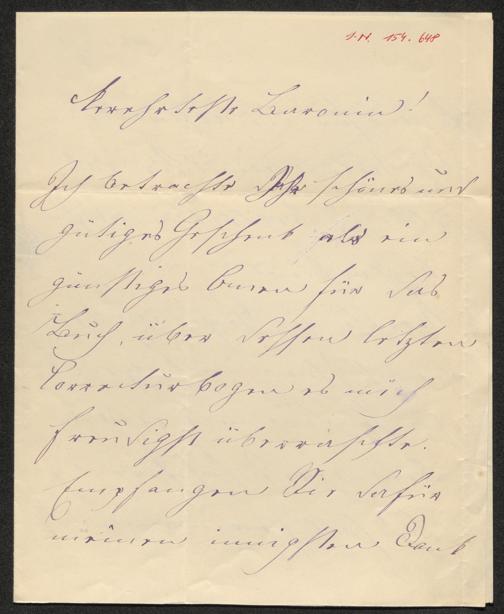 I.N. 154.648
Verehrteste Baronin!
Ich betrachte Ihr schönes und
gütiges Geschenk als ein
günstiges Omen für das
Buch, über dessen letzten
Correcturbogen es mich
freudigst überraschte.
Empfangen Sie dafür
meinen innigsten Dank